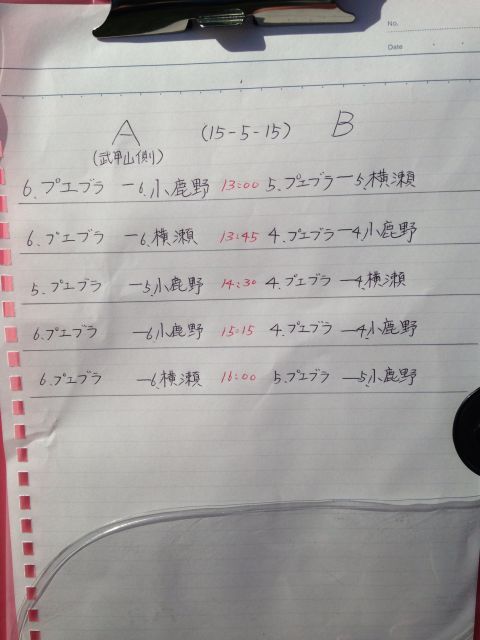 No.
Date
A (15-5-15) B
(武甲山側)
6.プエブラ ー6.小鹿野 13:00 5.プエブラー5.横瀬
6.プエブラ ー6.横瀬 13:45 4.プエブラー4.小鹿野
5.プエブラ ー5.小鹿野 14:30 4.プエブラ ー4.横瀬
6.プエブラ ー6.小鹿野 15:15 4.プエブラ ー4.小鹿野
6.プエブラ ー6.横瀬 16:00 5.プエブラ ー5.小鹿野